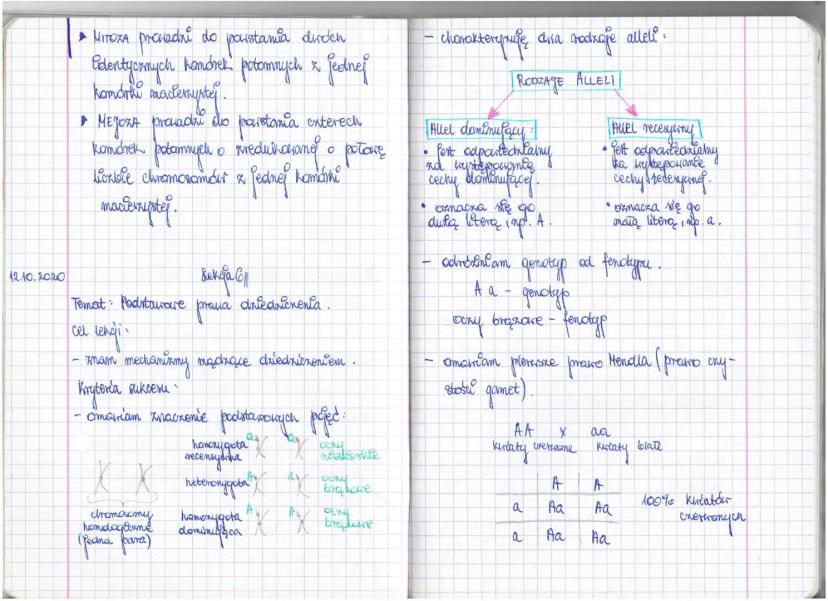 ▸ MITOZA prowadzi do powstania dwóch
identycznych komórek potomnych z jednej
komórki macierzystej.
▸ MEJOZA prowadzi do powstania czterech
komórek potomnych o zredukowanej o połowę
liczbie chromosomów z jednej komórki
macierzystej.
12.10.2020
Lekcja
Temat: Podstawowe prawa dziedziczenia.
Cel lekcji:
- znam mechanizmy rządzące dziedziczeniem.
Kryteria sukcesu:
- omawiam znaczenie podstawowych pojęć:
homozygota recesywna a a oczy niebieskie
heterozygota A a oczy brązowe
homozygota dominująca A A oczy brązowe
chromosomy
homologiczne
(jedna para)
- charakteryzuję dwa rodzaje alleli:
RODZAJE ALLELI
Allel dominujący:
• jest odpowiedzialny
za występowanie
cechy dominującej.
• oznacza się go
dużą literą, np. A.
Allel recesywny
• jest odpowiedzialny
za występowanie
cechy recesywnej.
• oznacza się go
małą literą, np. a.
- odróżniam genotyp od fenotypu.
A a - genotyp
oczy brązowe - fenotyp
- omawiam pierwsze prawo Mendla (prawo czy-
stości gamet).
AA x aa
kwiaty czerwone kwiaty białe
A A
a Aa Aa
a Aa Aa
100% kwiatów
czerwonych